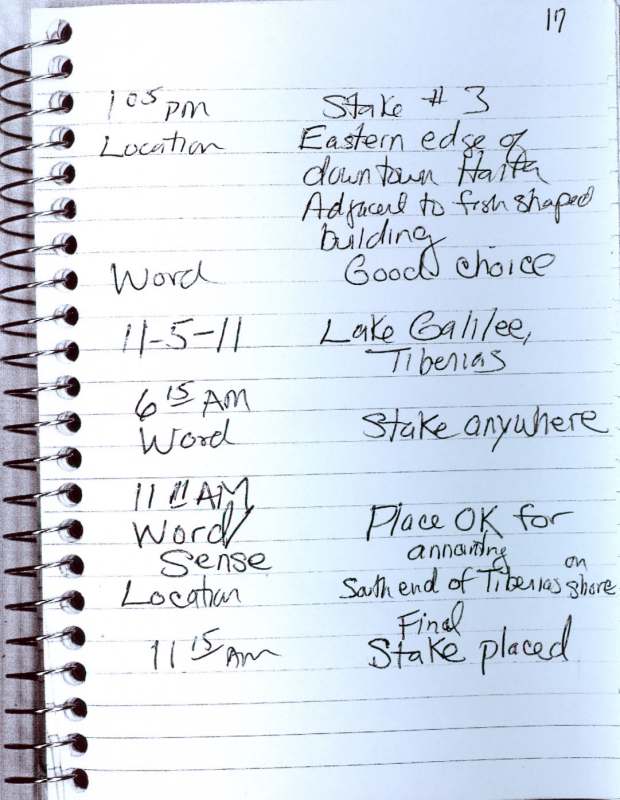 17
1 05 pm Stake # 3
Location Eastern edge of
downtown Haifa
Adjacent to fish shaped
building
Word Good choice
11-5-11 Lake Galilee,
Tiberias
6 15 AM
Word Stake anywhere
11 11 AM
Word/ Place OK for
Sense annointing
Location South end of Tiberias on shore
Final
11 15 AM Stake placed